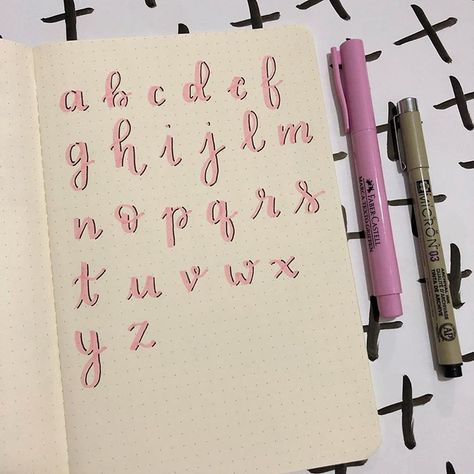 a b c d e f
g h i j l m
n o p q r s
t u v w x
y z
FABER-CASTELL
MICRON 03
AP